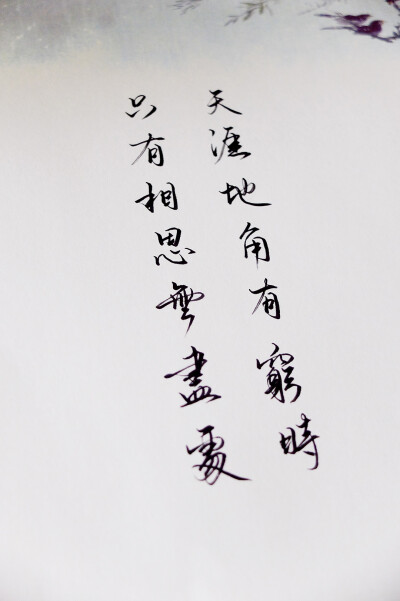 天涯地角有窮時
只有相思無盡處